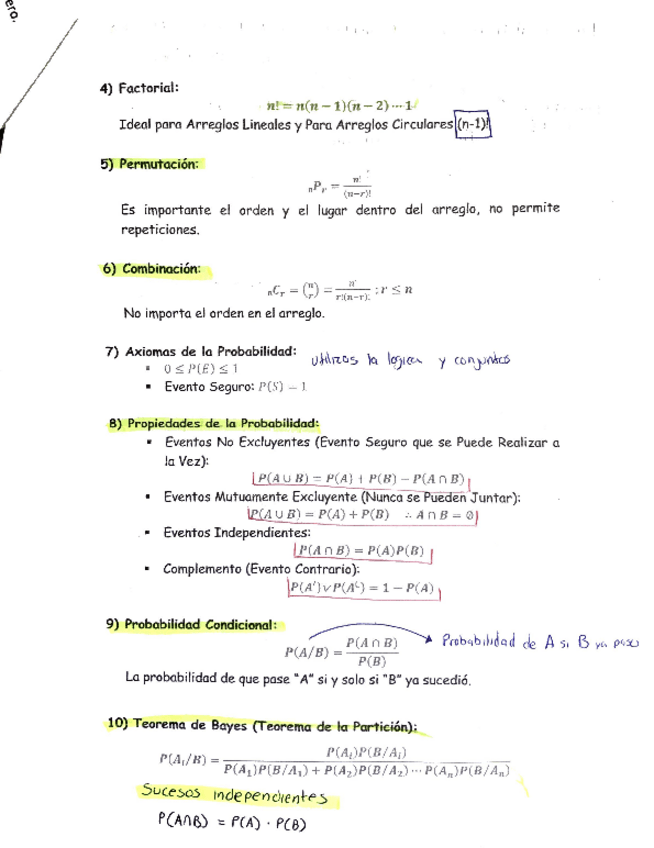 ero.
4) Factorial:
n! = n(n − 1)(n − 2) ⋯ 1
Ideal para Arreglos Lineales y Para Arreglos Circulares (n-1)!
5) Permutación:
nPr = n! / (n−r)!
Es importante el orden y el lugar dentro del arreglo, no permite
repeticiones.
6) Combinación:
nCr = (n r) = n! / r!(n−r)! ; r ≤ n
No importa el orden en el arreglo.
7) Axiomas de la Probabilidad:
▪ 0 ≤ P(E) ≤ 1 utilizas la logica y conjuntos
▪ Evento Seguro: P(S) = 1
8) Propiedades de la Probabilidad:
▪ Eventos No Excluyentes (Evento Seguro que se Puede Realizar a
la Vez):
P(A ∪ B) = P(A) + P(B) − P(A ∩ B)
▪ Eventos Mutuamente Excluyente (Nunca se Pueden Juntar):
P(A ∪ B) = P(A) + P(B) ∴ A ∩ B = ∅
▪ Eventos Independientes:
P(A ∩ B) = P(A)P(B)
▪ Complemento (Evento Contrario):
P(A') ∨ P(Aᶜ) = 1 − P(A)
9) Probabilidad Condicional:
P(A/B) = P(A ∩ B) / P(B) Probabilidad de A si B ya paso
La probabilidad de que pase "A" si y solo si "B" ya sucedió.
10) Teorema de Bayes (Teorema de la Partición):
P(Aᵢ/B) = P(Aᵢ)P(B/Aᵢ) / P(A₁)P(B/A₁) + P(A₂)P(B/A₂) ⋯ P(Aₙ)P(B/Aₙ)
Sucesos independientes
P(A∩B) = P(A) · P(B)